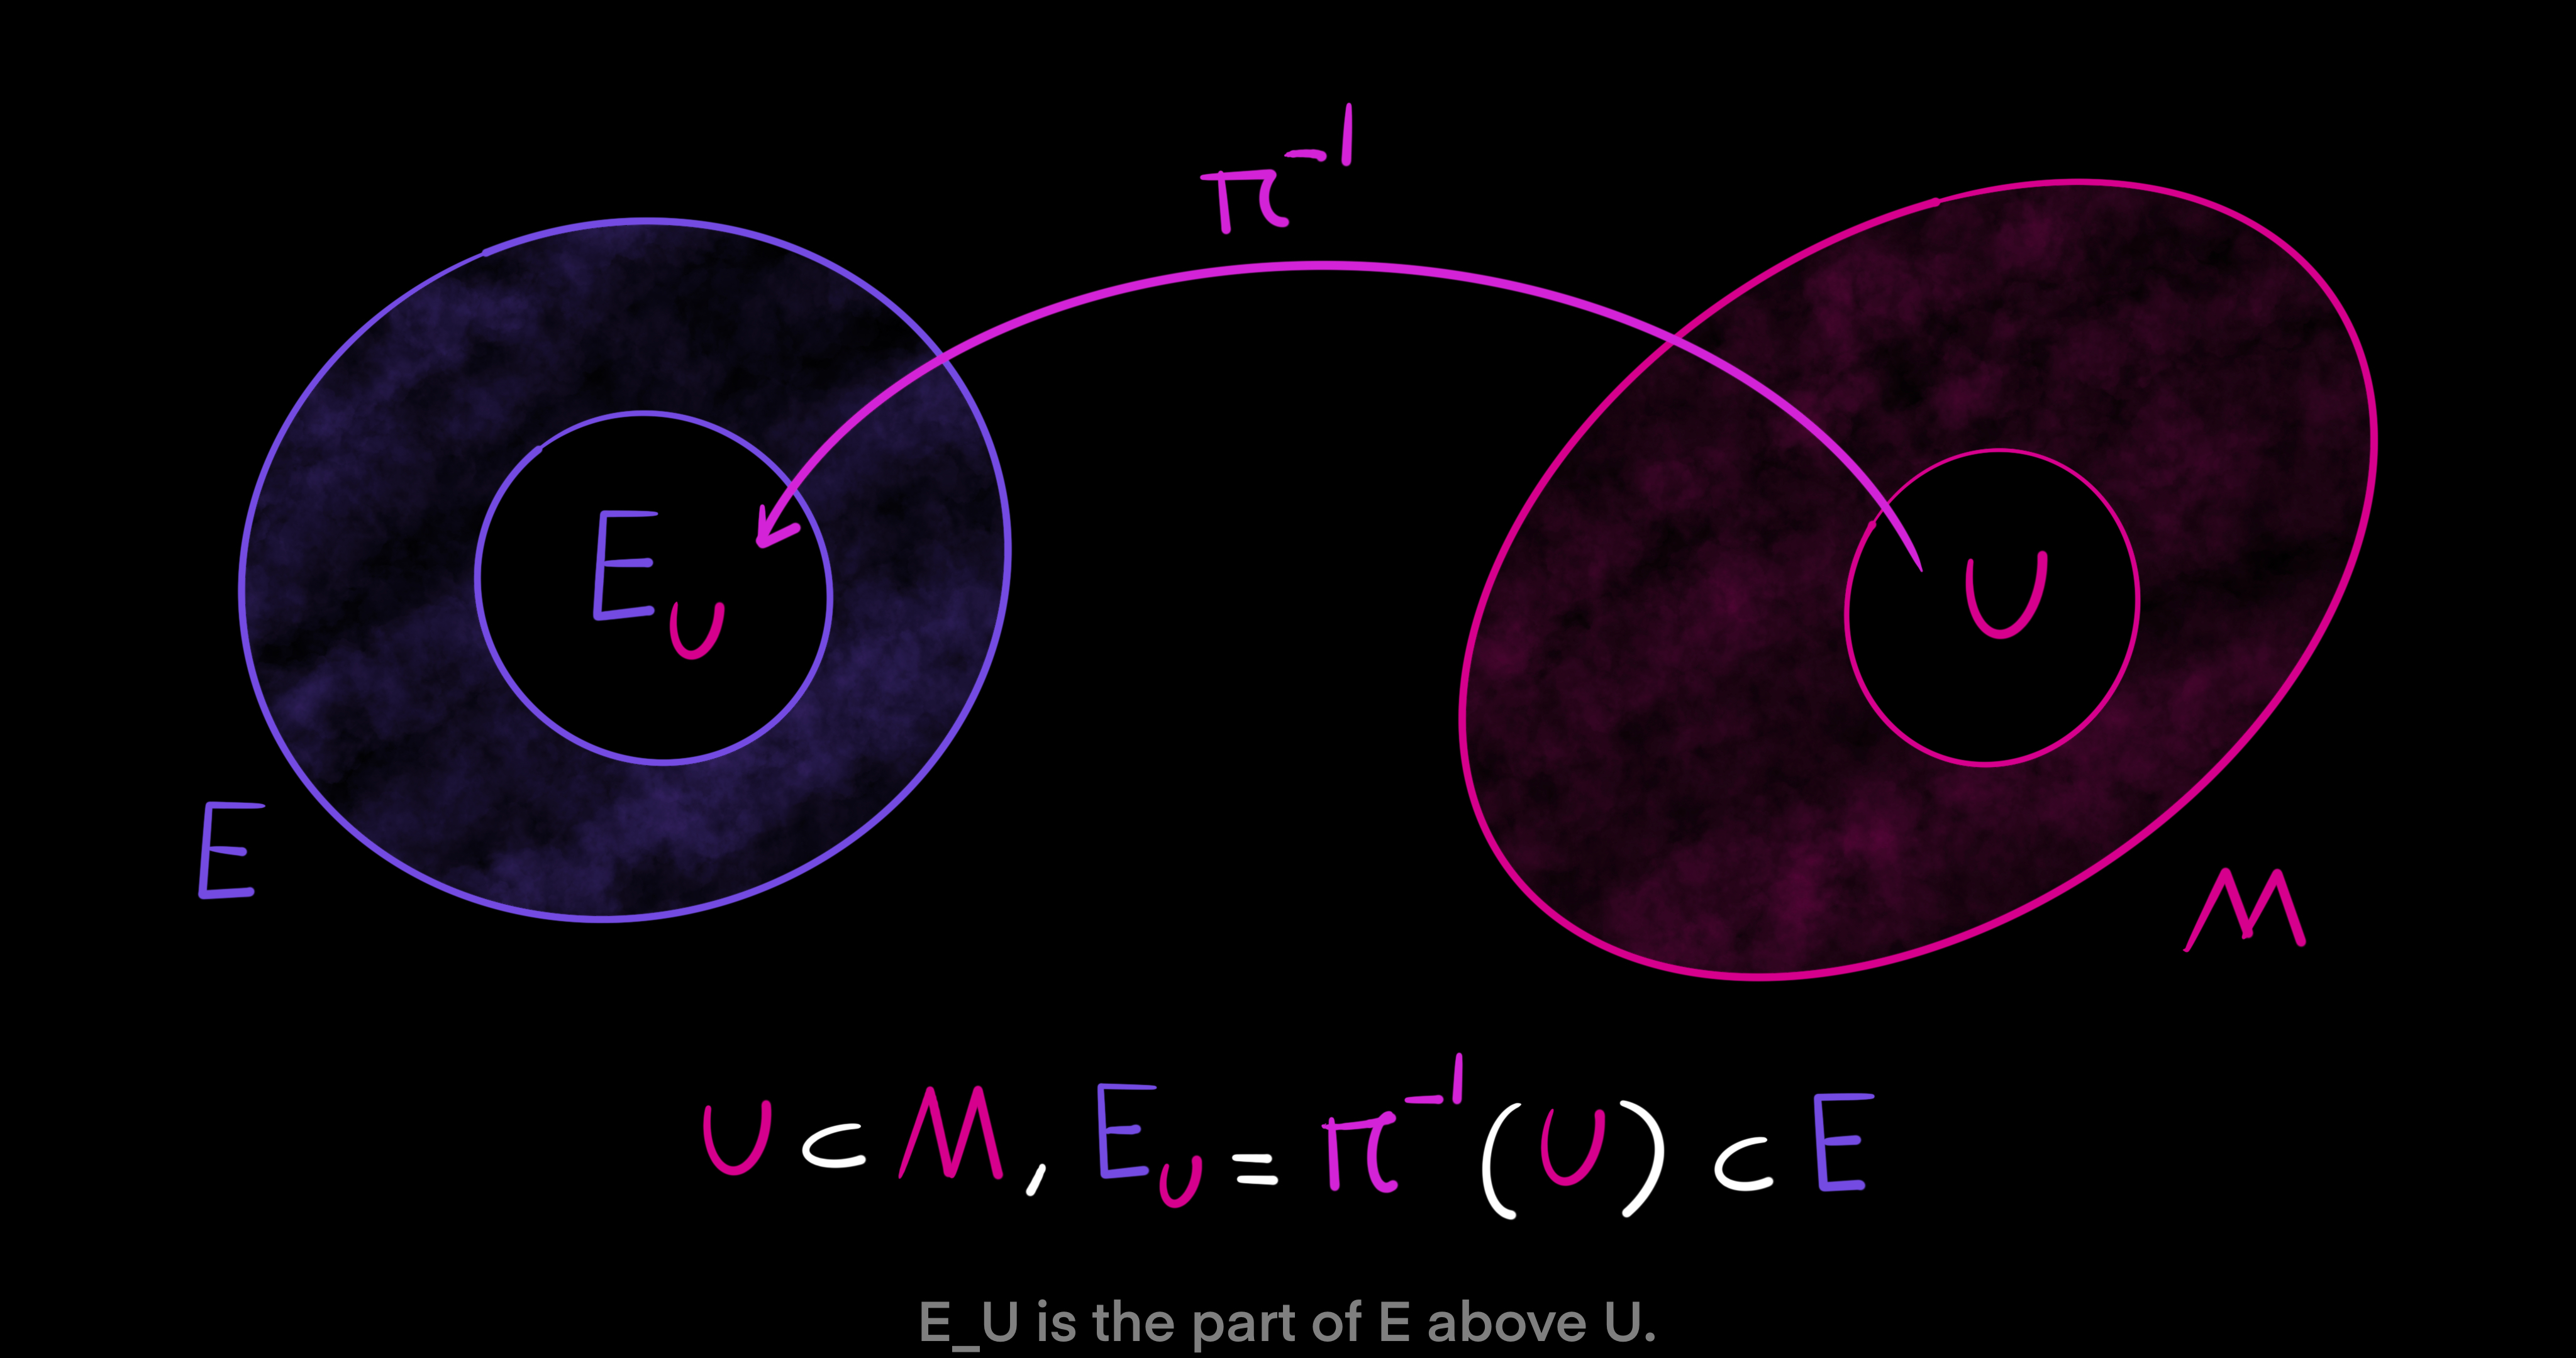 π⁻¹
E_U
U
E
M
U ⊂ M, E_U = π⁻¹(U) ⊂ E
E_U is the part of E above U.